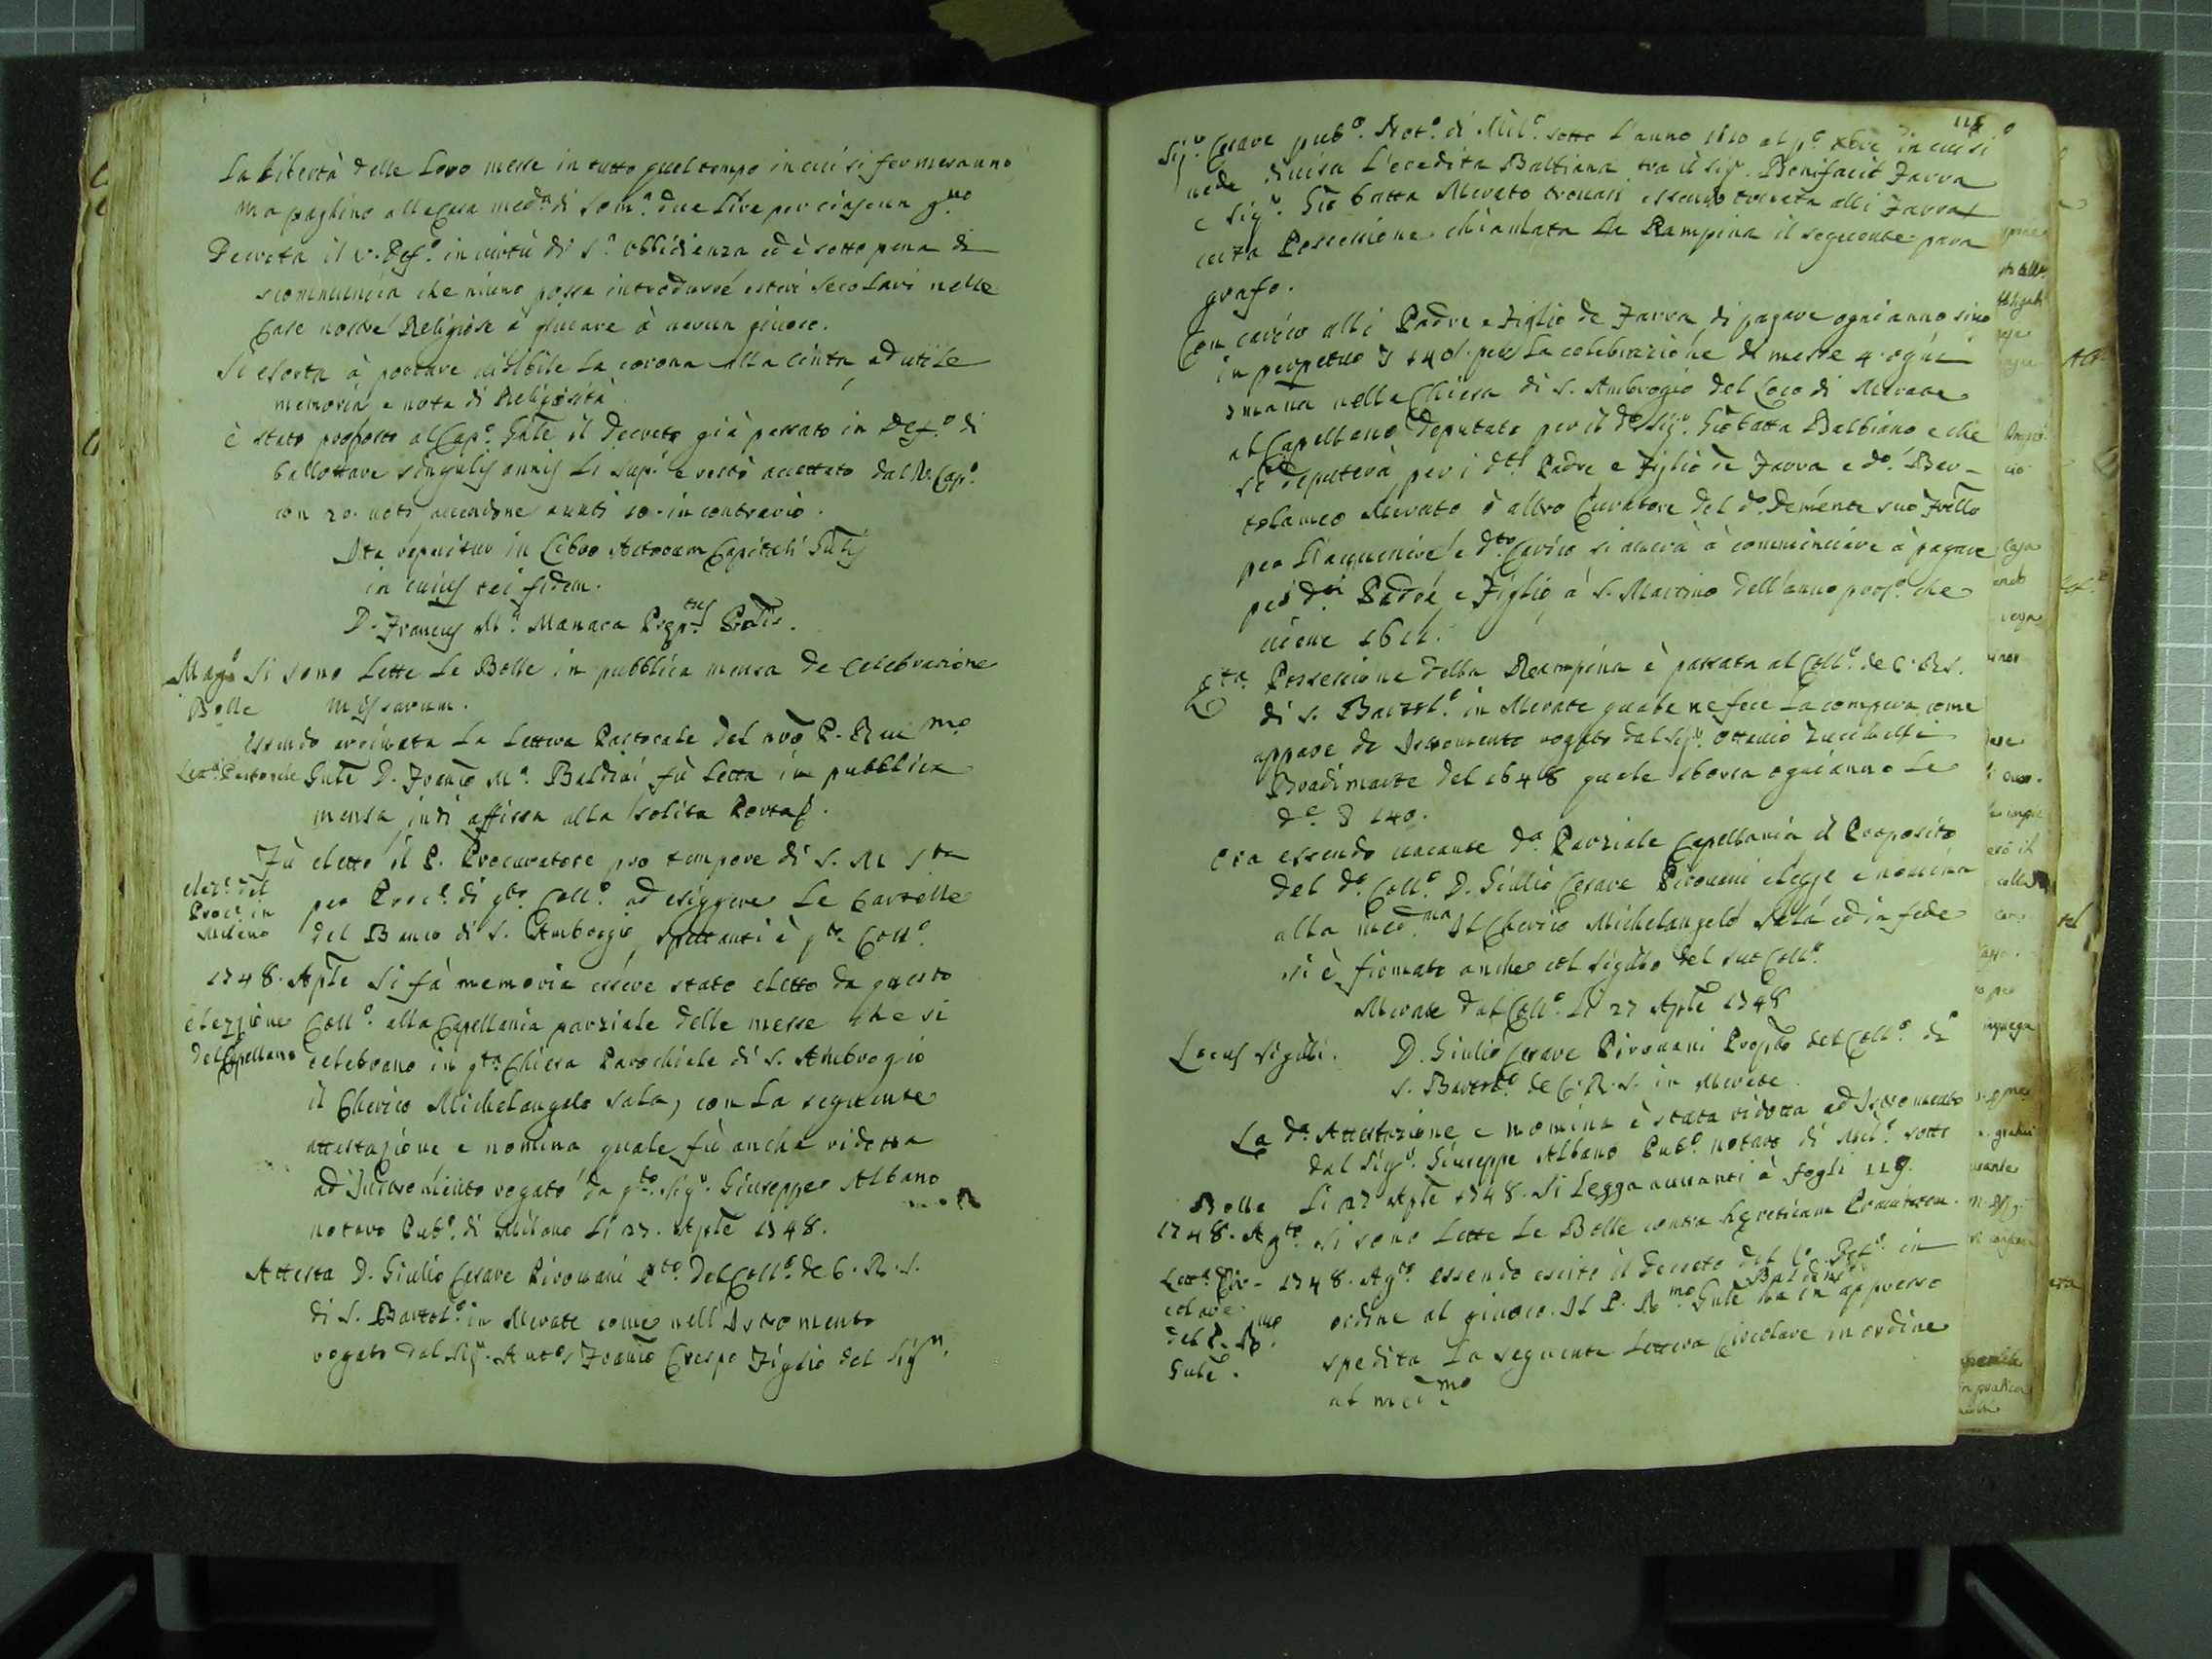 La libertà delle Loro messe in tutto quel tempo in cui si fermeranno
ma paghino alla Casa med.ª di som.ª due Lire per ciascun g.no
Decreta il V. Def.º in virtù di S.ª obbidienza ed è sotto pena di
scommunica che niuno possa introdurre esteri secolari nelle
Case nostre Religiose à giucare à verun giuoco.
Si esorta à portare visibile la corona alla cinta ad utile
memoria e nota di Religiosità.
è stato proposto al Cap.º Gnle il decreto già passato in Def.º di
ballottare singulis annis li Sup.i e restò accettato dal V. Cap.º
con 20. voti avendone avuti 10. in contrario.
Ita reperitur in Libro Actorum Capituli Gnlis
in cuius rei fidem.
D. Francus M.ª Manara
Mag.º Si sono Lette Le Bolle in pubblica mensa de Celebratione
Bolle missarum.
Essendo arrivata La Lettera Pastorale del nrõ P. Rev.mo
Lett.ª Pastorale Gnle D. Franco M.ª Baldini fù Letta in pubblica
mensa indi affissa alla solita Porta.
Fù eletto il P. Procuratore pro tempore di S. M. S.ta
elez.e del
Proc.e in
Milano
per Proc.e di q.to Coll.º ad esiggere Le Cartelle
del Banco di S. Ambrogio spettanti à q.to Coll.º
1748. Aple Si fà memoria essere stato eletto da questo
elezzione Coll.º alla Capellania parziale delle messe che si
del Capellano celebrano in q.ta Chiesa Parochiale di S. Ambrogio
il Cherico Michelangelo Sala, con La seguente
attestazione e nomina quale fù anche ridotta
ad Instromento rogato da q.to Sig.r Giuseppe Albano
notaro Pub.º di Milano Li 27. Aple 1748.
Attesta D. Giulio Cesare Pirovani P.to del Coll.º de C. R. S.
di S. Bartol.º in Merate come nell'Istromento
rogato dal Sig.r Ant.o Franco Crespo Figlio del Sig.r
118
Sig.r Cesare pub.º Not.º di Mil.º sotto L'anno 1610 al p.º Xbre in cui si
vede divisa L'eredita Balbiana tra il Sig.r Bonifacio Zarra
e Sig.r Gio batta Merato trovasi essendo toccata alli Zarra
certa Possessione chiamata La Rampina il seguente para
grafo.
Con carico alli Padre e Figlio de Zarra di pagare ogni anno sino
in perpetuo per La celebrazione di messe 4. ogni
smana nella Chiesa di S. Ambrogio del Loco di Merate
al Capellano deputato per il d.º Sig.r Gio batta Balbiano e che
si deputerà per i d.ti Padre e Figlio de Zarra e d.º Ber-
tolameo Merato ò altro Curatore del d.º Demente suo Frello
per L'avvenire e d.to Carico si averà à comminciare à pagare
per d.ti Padre e Figlio à S. Martino dell'anno pros.º che
viene 1611.
D.ta Possessione della Rampina è passata al Coll.º de C. R. S.
di S. Bartol.º in Merate quale ne fece La compera come
appare da Istromento rogato dal Sig.r Ottavio
Bradimarte del 1648 quale sborsa ogni anno Le
d.e 140.
Ora essendo vacante d.ª Parziale Capellania il Proposito
del d.º Coll.º D. Giulio Cesare Pirovani elegge e nomina
alla med.ma Il Cherico Michelangelo Sala ed in fede
si è firmato anche col sigillo del suo Coll.º
Merate dal Coll.º Li 27 Aple 1748
Locus Sigilli. D. Giulio Cesare Pirovani Propto del Coll.º di
S. Bartol.º de C. R. S. in Merate.
La d.ª Attestazione e nomina è stata ridotta ad Istromento
dal Sig.r Giuseppe Albano Pub.º notaro di Mil.º sotto
Li 27 Aple 1748. Si Legga avvanti à fogli 119.
Bolle
1748. Ag.to Si sono Lette Le Bolle contra hereticam Pravitatem.
Lett.ª Cir- 1748. Ag.to essendo escito il decreto del V. Def.º in
colare
del P. R.mo
Gnle.
ordine al giuoco. Il P. R.mo Gnle Baldini ha in appresso
spedita La seguente Lettera Circolare in ordine
al med.mo